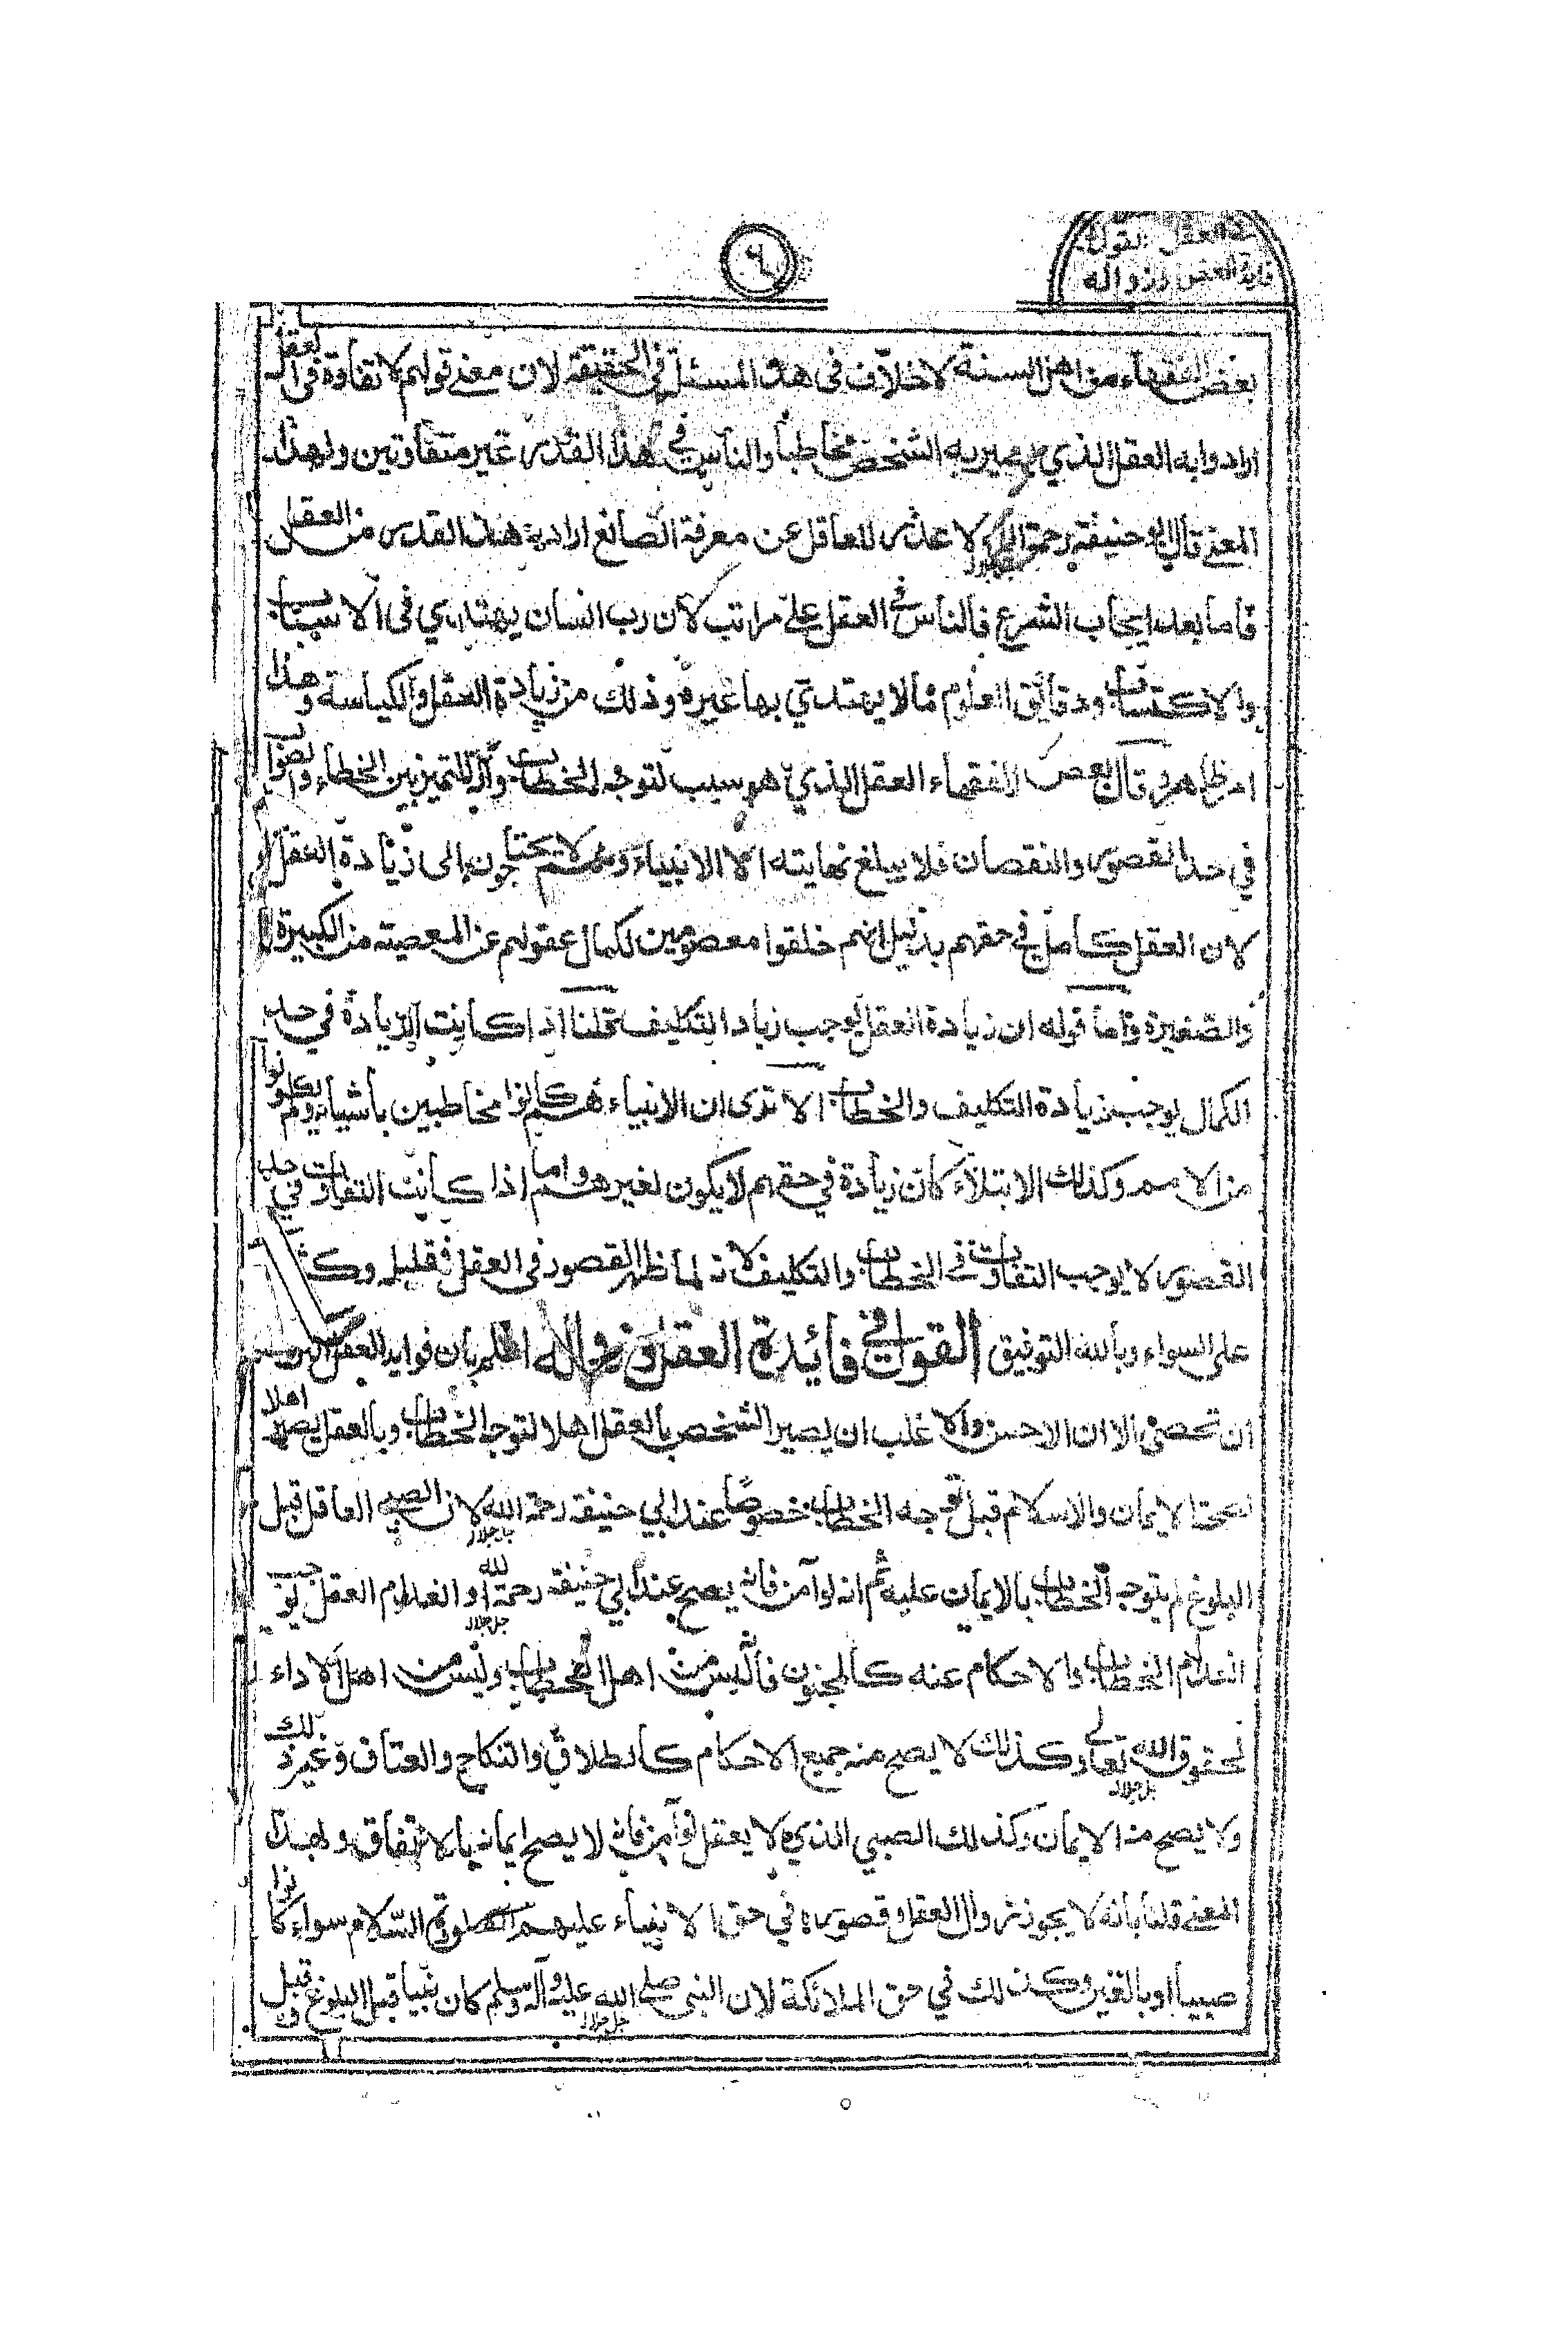 ٦
العقل القول
فايدة العقل وزواله
بعض الفقهاء من اهل السنة لا خلاف في هذه المسئلة في الحقيقة لان معنى قولهم لا تفاوة في العقل
ارادوا به العقل الذي يصير به الشخص مخاطبا والناس في هذا القدر غير متفاوتين ولهذا
المعنى قال ابو حنيفة رحمة الله لا عذر للعاقل عن معرفة الصانع اراد به هذا القدر من العقل
فاما بعد ايجاب الشرع فالناس في العقل على مراتب لان رب انسان يهتدي في الاسباب
والاكتساب ودقائق العلوم مالا يهتدي بها غيره وذلك من زيادة العقل والكياسة وهذا
امر ظاهر قال بعض الفقهاء العقل الذي هو سبب لتوجه الخطاب وآلة للتميز بين الخطاء والصواب
في حد القصور والنقصان فلا يبلغ نهايته الا الانبياء وهم لا يحتاجون الى زيادة العقل
لان العقل كامل في حقهم بدليل انهم خلقوا معصومين لكمال عقولهم عن المعصية من الكبيرة
والصغيرة واما قوله ان زيادة العقل يوجب زياد التكليف قلنا اذا كانت الزيادة في حد
الكمال يوجب زيادة التكليف والخطاب الا ترى ان الانبياء هم كانوا مخاطبين بأشياء ولم يكونوا
من الامم وكذلك الابتلاء كان زيادة في حقهم لا يكون لغيرهم واما اذا كانت التفاوت في حد
القصور لا يوجب التفاوت في الخطاب والتكليف لانه لما ظهر القصور في العقل فقليله وكثيره
على السواء وبالله التوفيق القول في فائدة العقل وزواله اعلم بان فوايد العقل اكثر من
ان تحصى الا ان الاحسن والاغلب ان يصير الشخص بالعقل اهلا لتوجه الخطاب وبالعقل يصير اهلا
لصحة الايمان والاسلام قبل توجه الخطاب خصوصا عند ابي حنيفة رحمة الله لان الصبي العاقل قبل
جل جلاله
البلوغ لم يتوجه الخطاب بالايمان عليه ثم انه لو آمن فانه يصح عند ابي حنيفة رحمة الله وانعدام العقل يوجب
جل جلاله
انعدام الخطاب والاحكام عنه كالمجنون فأليس من اهل الخطاب وليس من اهل الاداء
لحقوق الله تعالى وكذلك لا يصح منه جميع الاحكام كالطلاق والنكاح والعتاق وغير ذلك
جل جلاله
ولا يصح منه الايمان وكذلك الصبي الذي لا يعقل لو آمن فانه لا يصح ايمانه بالاتفاق ولهذا
المعنى قلنا بانه لا يجوز زوال العقل وقصوره في حق الانبياء عليهم الصلوة والسلام سواء كانوا
صبيا او بالغين وكذلك في حق الملائكة لان النبي صلى الله عليه وآله وسلم كان نبيا قبل البلوغ وقبل
جل جلاله